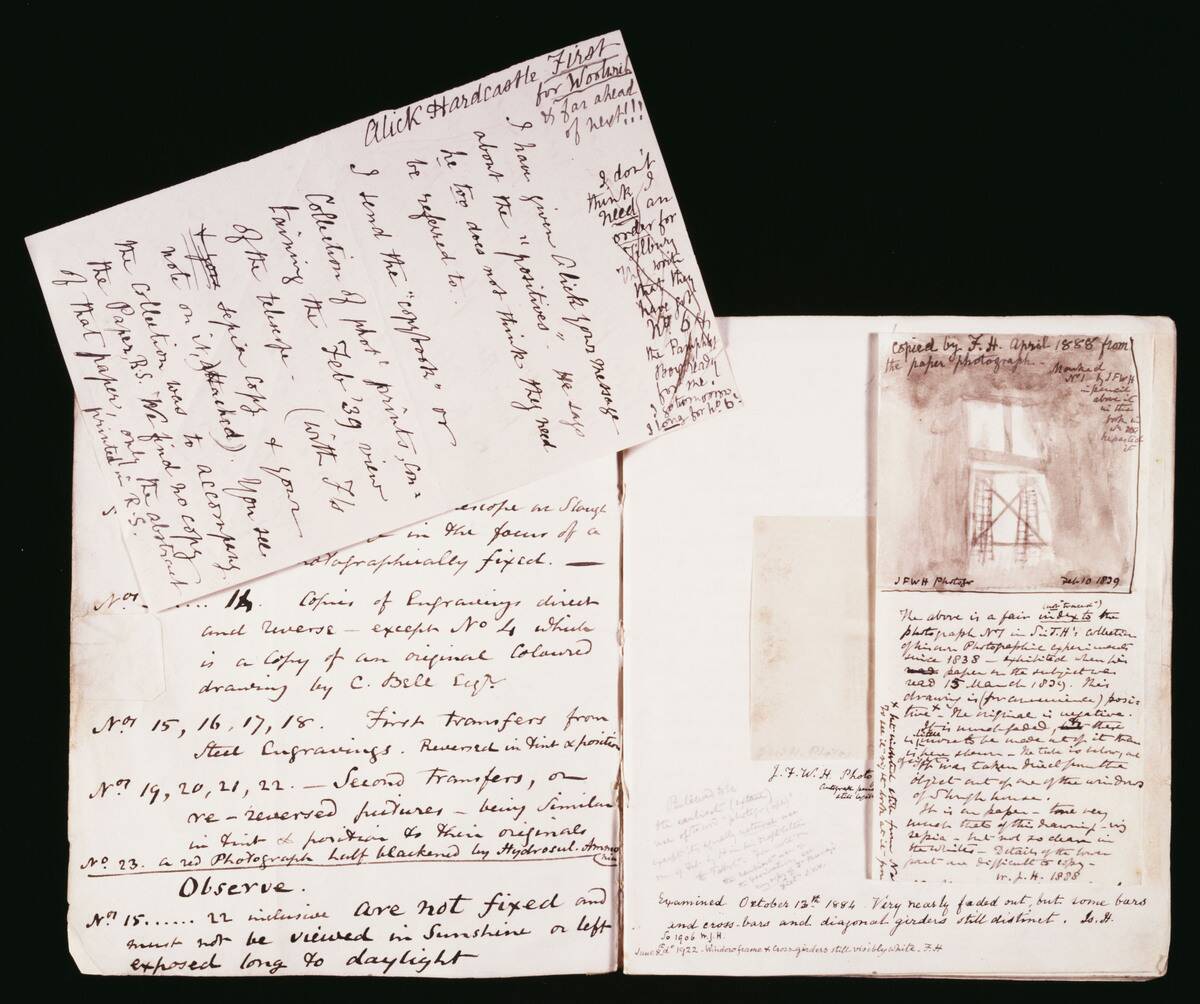 Alick Hardcastle First
for Woolwich
& far ahead
of next!!!
I have given Alick your message
about the "positives" - He says
he too does not think they need
be referred to -
I send the "copybook" or
Collection of phot^c prints, con=
taining the Feb '39 view
of the telescope - (with I's
& your sepia copy & your
note on it attached). You see
the Collection was to accompany
the Paper, R.S. We find no copy
of that paper, only the abstract
printed in R.S.
I don't
think I
need an
order for
Tilbury
write
that they
have got
N° 6 &
the Pamphlet
Box ready
for me.
long for N° 9.
escope at Slough
in the focus of a
otographically fixed. —
N^os ..... 14. Copies of Engravings direct
and reverse - except N° 4 which
is a Copy of an original Coloured
drawing by C. Bell Esq^r.
N^os 15, 16, 17, 18. First transfers from
Steel Engravings. Reversed in tint & position
N^os 19, 20, 21, 22. — Second Transfers, or
re-reversed pictures - being Similar
in tint & position to their originals
N°. 23. a red Photograph half blackened by Hydrosul. Ammonia
Observe.
N^os 15...... 22 inclusive are not fixed and
must not be viewed in Sunshine or left
exposed long to daylight
Copied by F. H. April 1888 from
the paper photograph -
Marked
N° 1 by JFWH
in pencil
above it
in this
book
JFWH Photogr Feb 10 1839
The above is a fair (not "traced") index to the
photograph N° 1 in Sir J. H's collection
of his own Photographic experiments
since 1838 - exhibited when his
paper on the subject was
read 15 March 1839. This
drawing is (for convenience) posi=
tive - The original is negative.
It is much faded,
is more to be made out of it than
is here shewn - The tube is below, as
it was taken direct from the
object out of one of the windows
of Slough house.
It is on paper - tone very
much that of this drawing - viz
sepia - but not so clear in
the whites - Details of the lower
part are difficult to copy -
W. J. H. 1888
J. F. W. H. Photo
Examined October 13th 1884. Very nearly faded out, but some bars
and cross-bars and diagonal girders still distinct. Is. H.
Do 1906 W. J. H.
June 2d 1922 - Window frame & Cross girders still visibly white - F. H